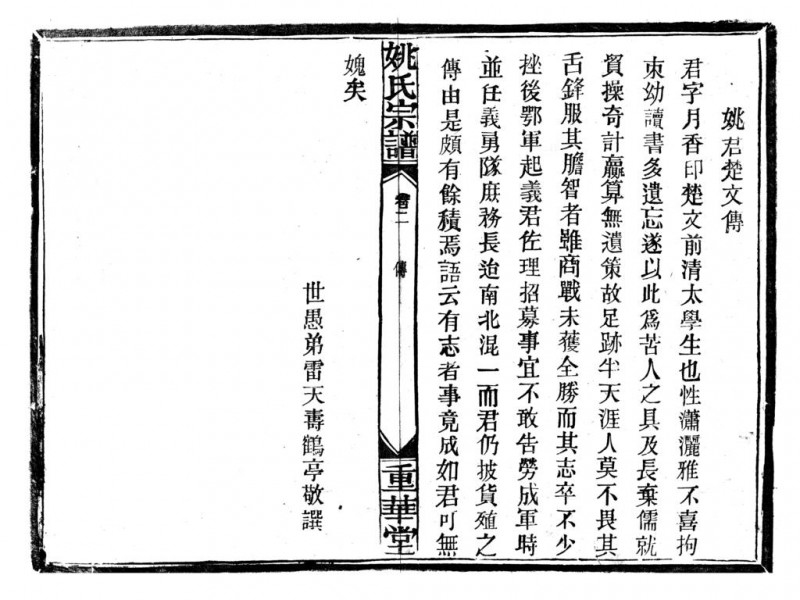 姚君楚文傳
君字月香印楚文前清太學生也性瀟灑雅不喜拘
束幼讀書多遺忘遂以此為苦人之具及長棄儒就
賈操奇計贏算無遺策故足跡半天涯人莫不畏其
舌鋒服其膽智者雖商戰未獲全勝而其志卒不少
挫後鄂軍起義君佐理招募事宜不敢告勞成軍時
並任義勇隊庶務長迨南北混一而君仍披貨殖之
傳由是頗有餘積焉語云有志者事竟成如君可無
姚氏宗譜
卷二
傳
重華堂
媿矣
世愚弟雷天壽鶴亭敬譔